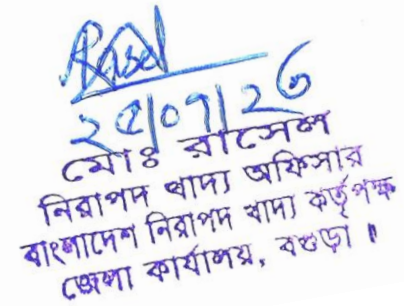 Rasel
২৫/০৭/২৬
মোঃ রাসেল
নিরাপদ খাদ্য অফিসার
বাংলাদেশ নিরাপদ খাদ্য কর্তৃপক্ষ
জেলা কার্যালয়, বগুড়া।